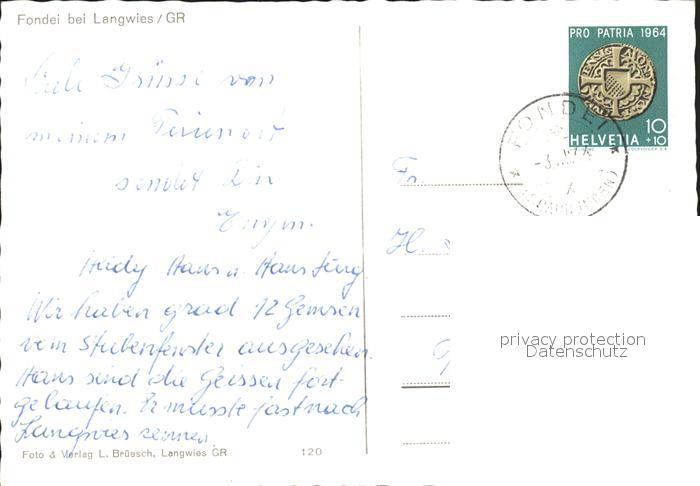 Fondei bei Langwies/GR
PRO PATRIA 1964
10
+10
HELVETIA
FONDEI
Viele Grüsse von
meinem Ferienort
sendet Dir
Heidy Hans u. Hans Jürg
Wir haben grad 12 Gemsen
vom Stubenfenster aus gesehen.
Hans sind die Geissen fort-
gelaufen. Er musste fast nach
Langwies rennen.
Fr.
H.
privacy protection
Datenschutz
Foto & Verlag L. Brüesch, Langwies GR 120